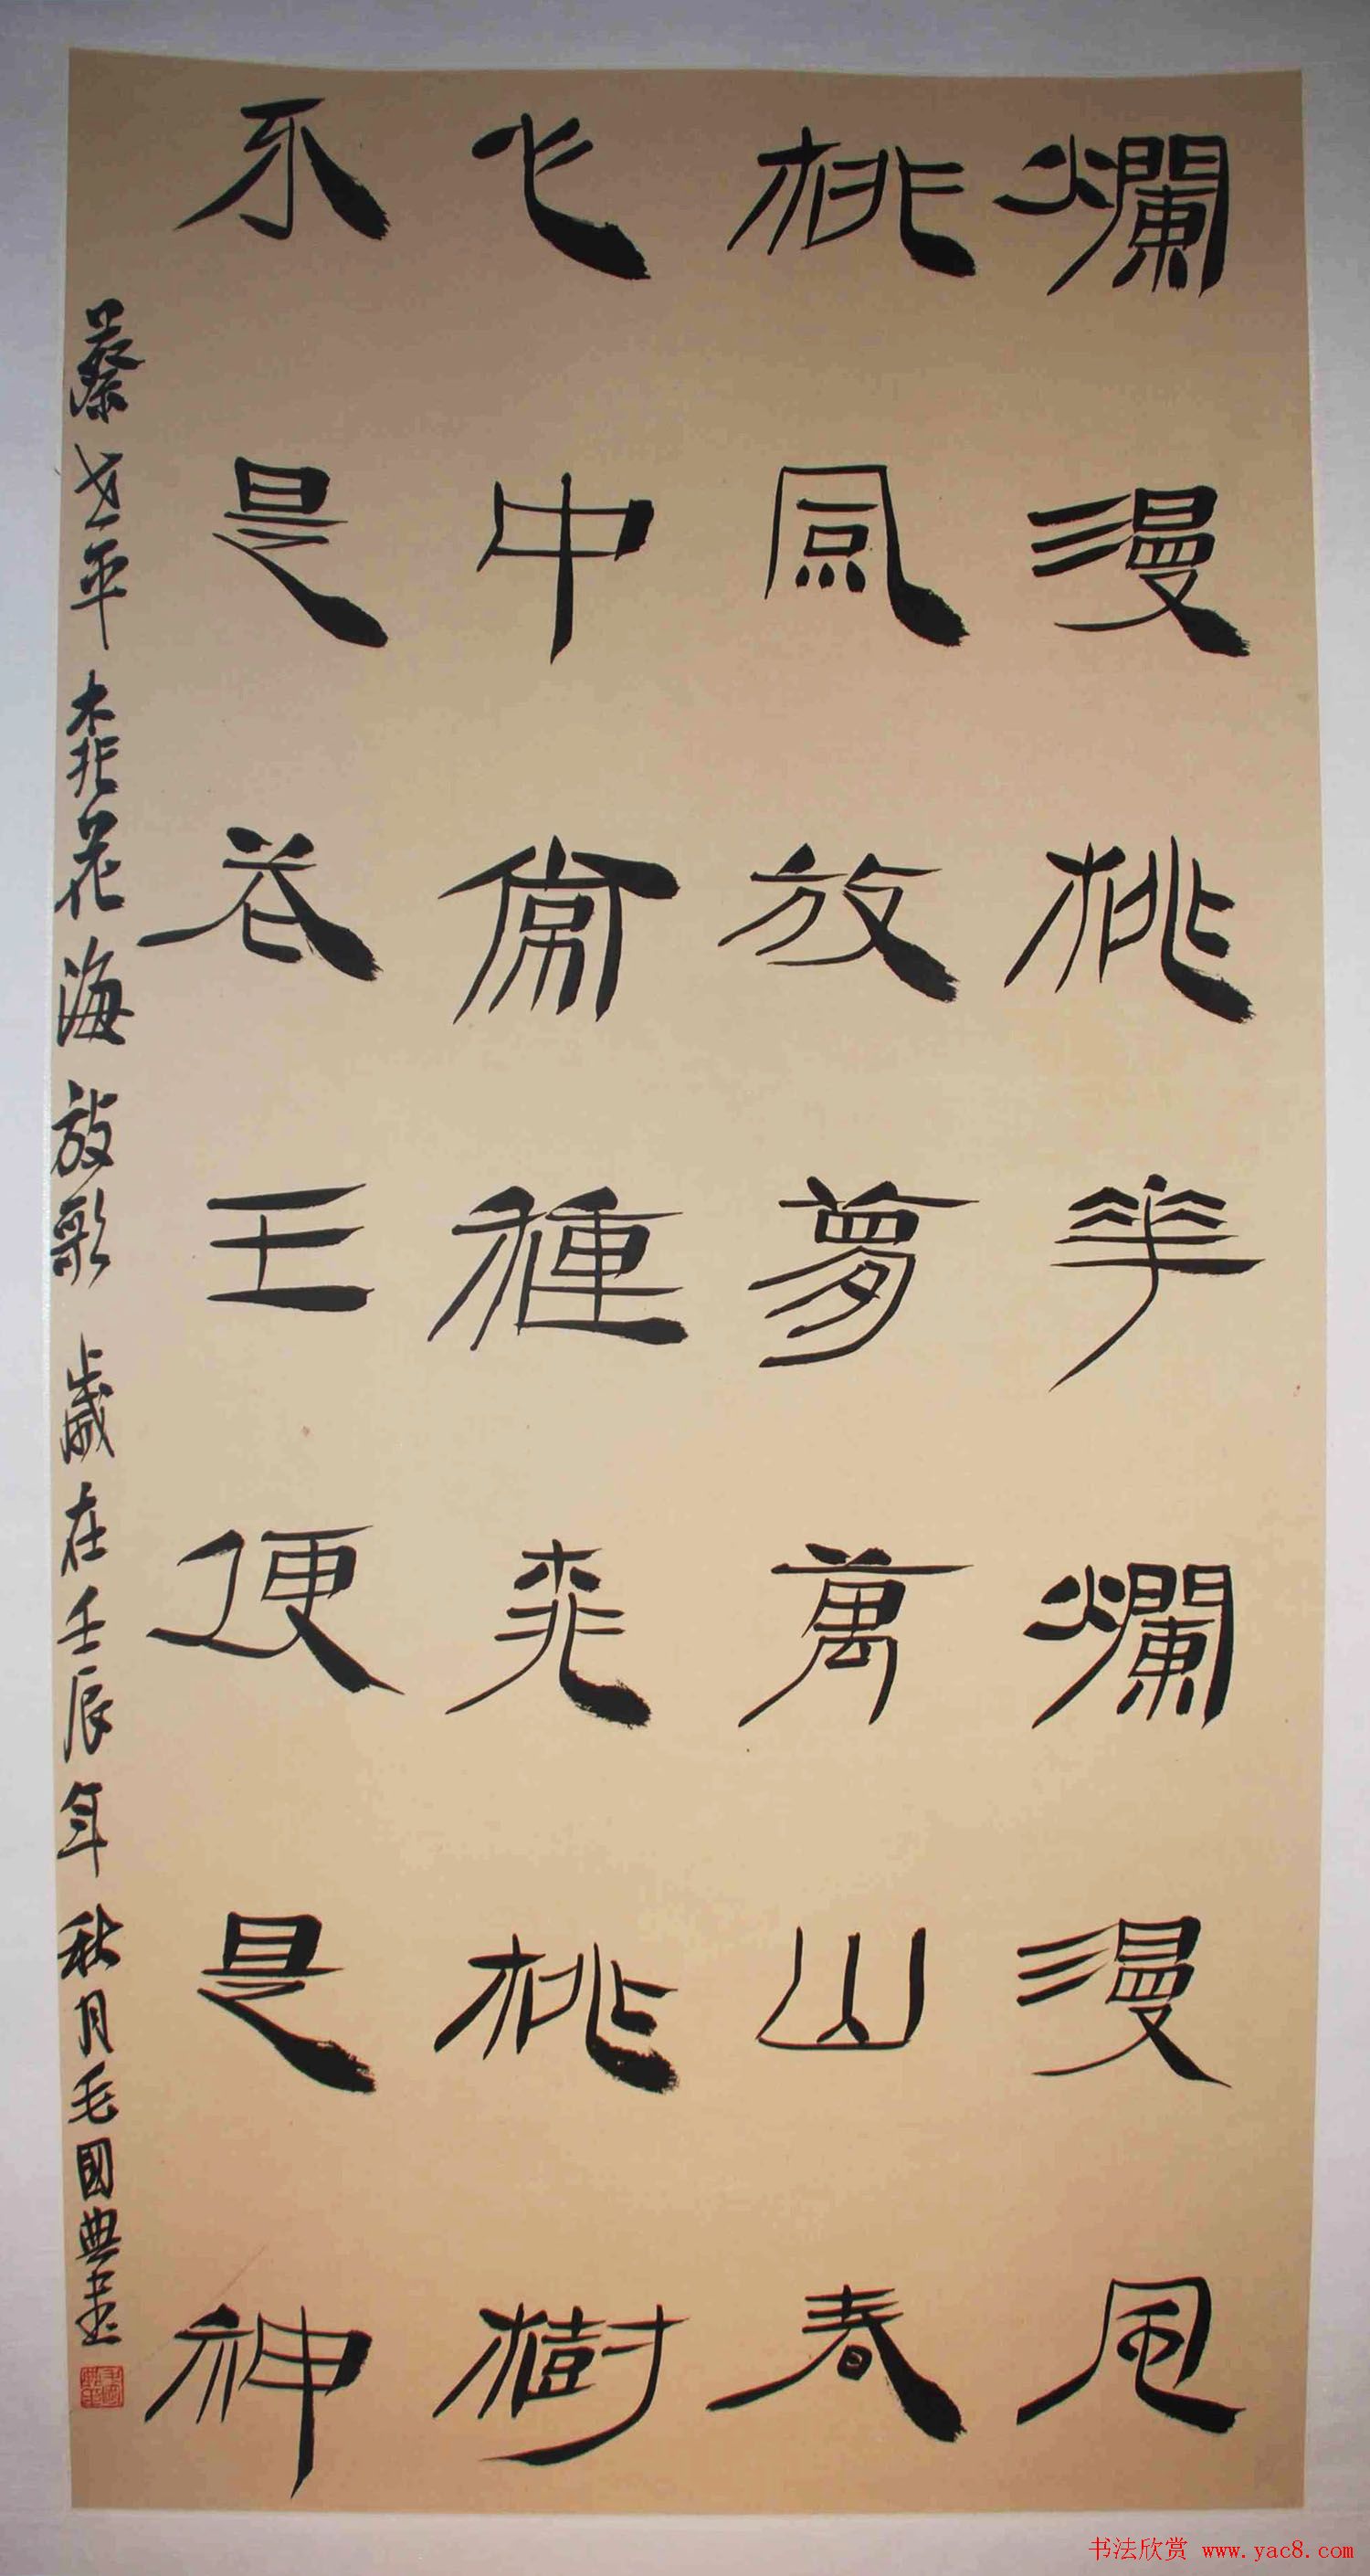 爛漫桃花爛漫風
桃風放夢萬山春
心中常種桃桃樹
不是谷王便是神
蔡世平桃花海放歌 歲在壬辰年秋月毛國典書
书法欣赏 www.yac8.com